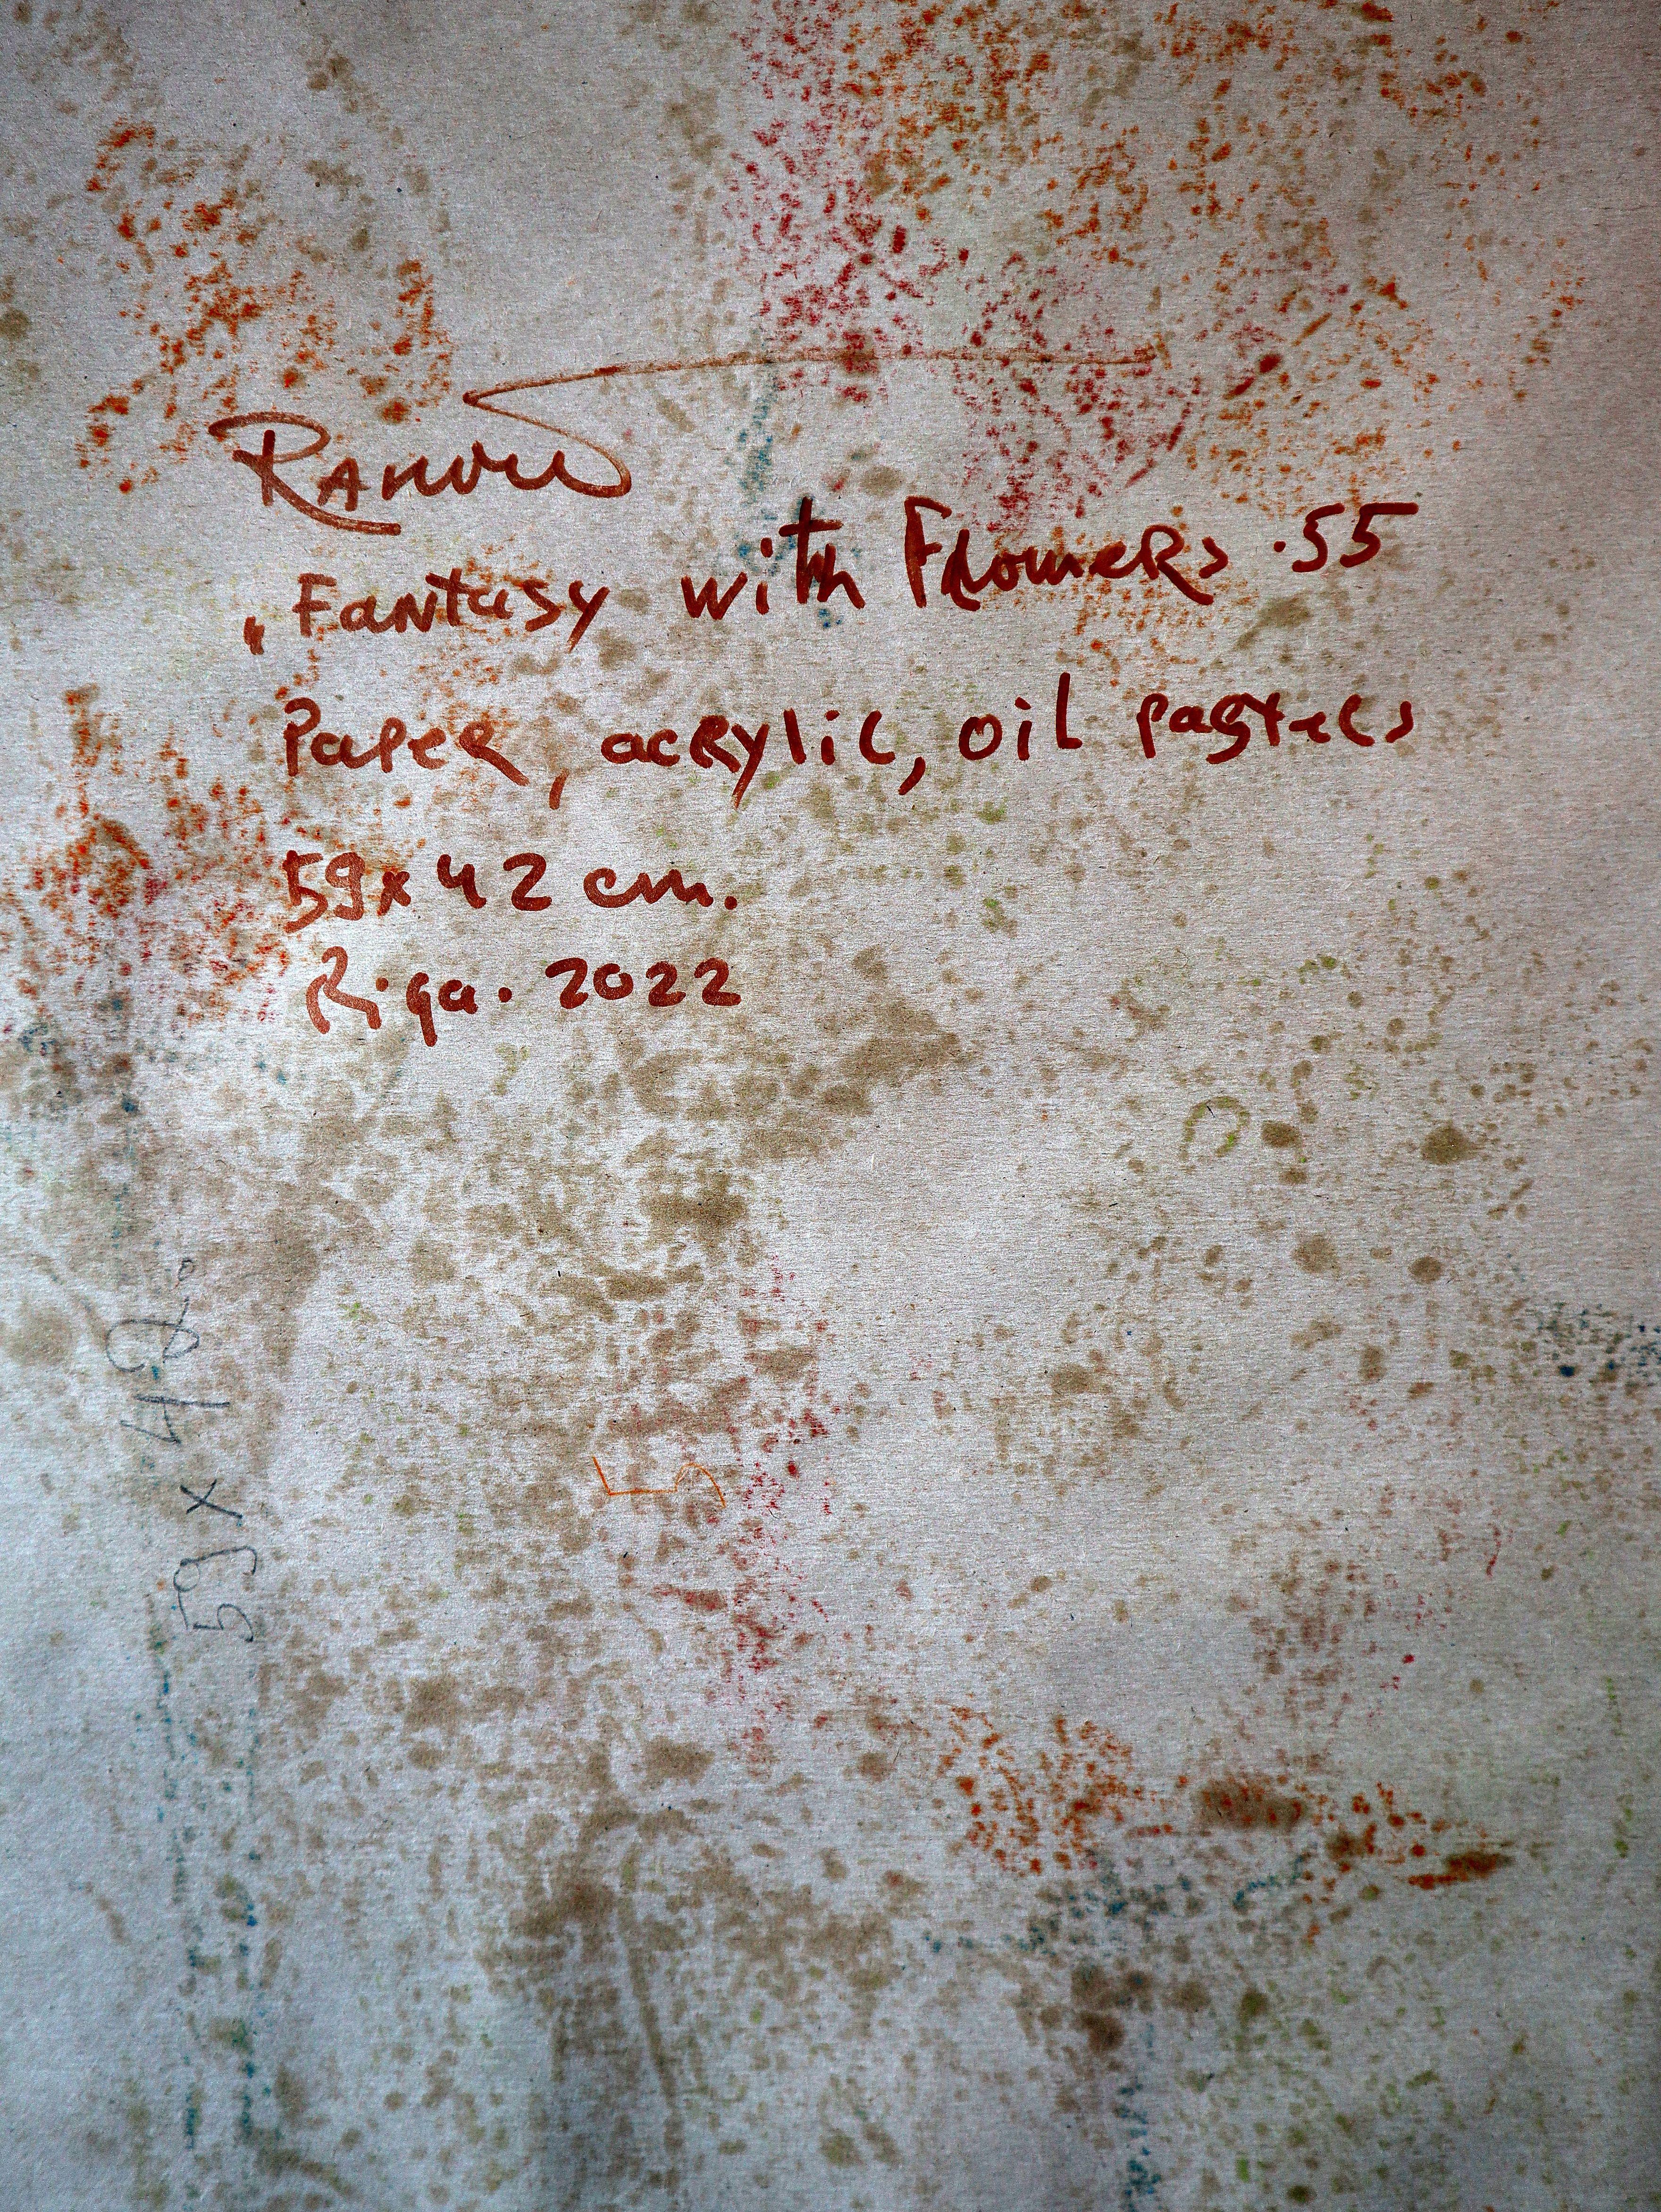 „Fantasy with Flowers .55
Paper, acrylic, oil pastels
59x42 cm.
Riga. 2022
59 x 42
5